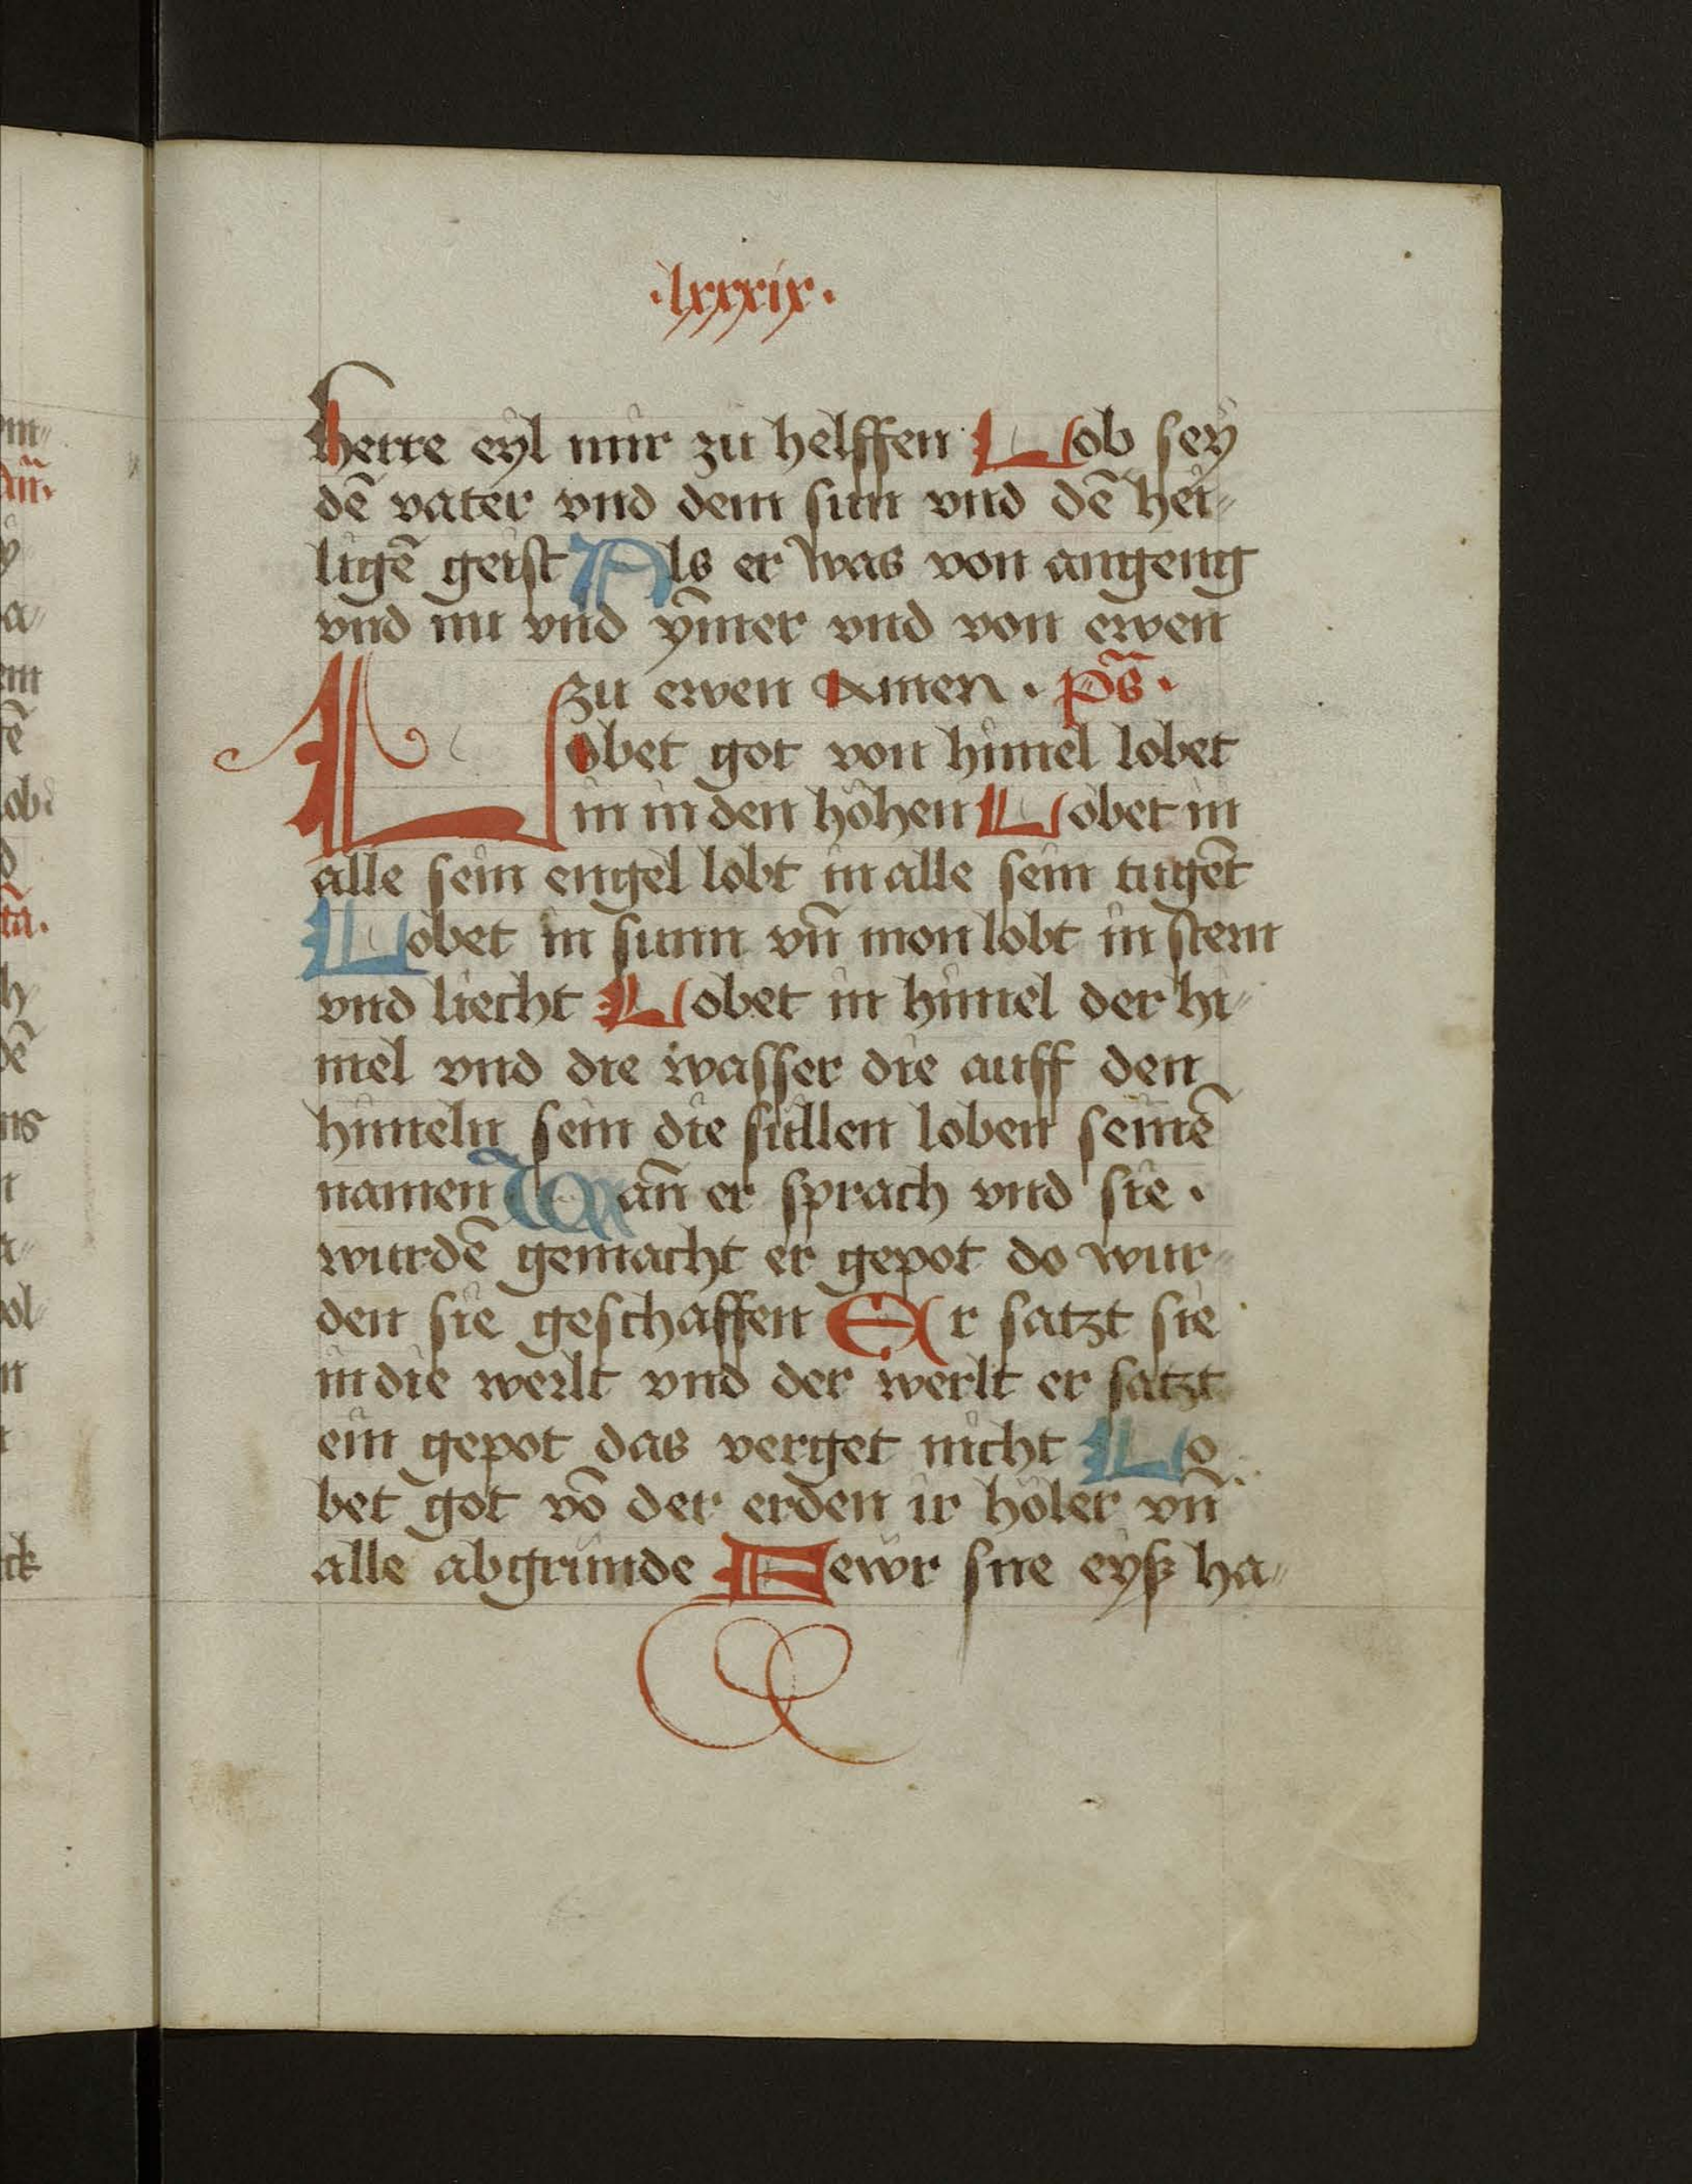 ·lxxxix·
herre eyl mir zu helffen Lob sey
dē vater vnd dem sun vnd dē hei-
ligē geist Als er was von angeng
vnd nu vnd ym̄er vnd von ewen
zu ewen Amen · ps̄ ·
Lobet got von himel lobet
in in den höhen Lobet in
alle sein engel lobt in alle sein tugēt
Lobet in sunn vn̄ mon lobt in stern
vnd liecht Lobet in himel der hi-
mel vnd die wasser die auff den
himeln sein die süllen loben seinē
namen Wan̄ er sprach vnd sie ·
wurdē gemacht er gepot do wur-
den sie geschaffen Er satzt sie
in die werlt vnd der werlt er satzt
ein gepot das verget nicht Lo-
bet got vō der erden ir höler vn̄
alle abgründe Fewr sne eyß ha-